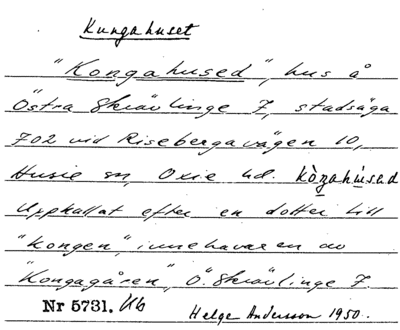 Kungahuset
"Kongahused", hus å
Östra Skrävlinge 7, stadsäga
702 vid Risebergavägen 10,
Husie sn, Oxie hd. kòŋahúsəd
Uppkallat efter en dotter till
"kongen", innehavaren av
"Kongagåren", Ö. Skrävlinge 7.
Nr 5731. Ub
Helge Andersson 1950.